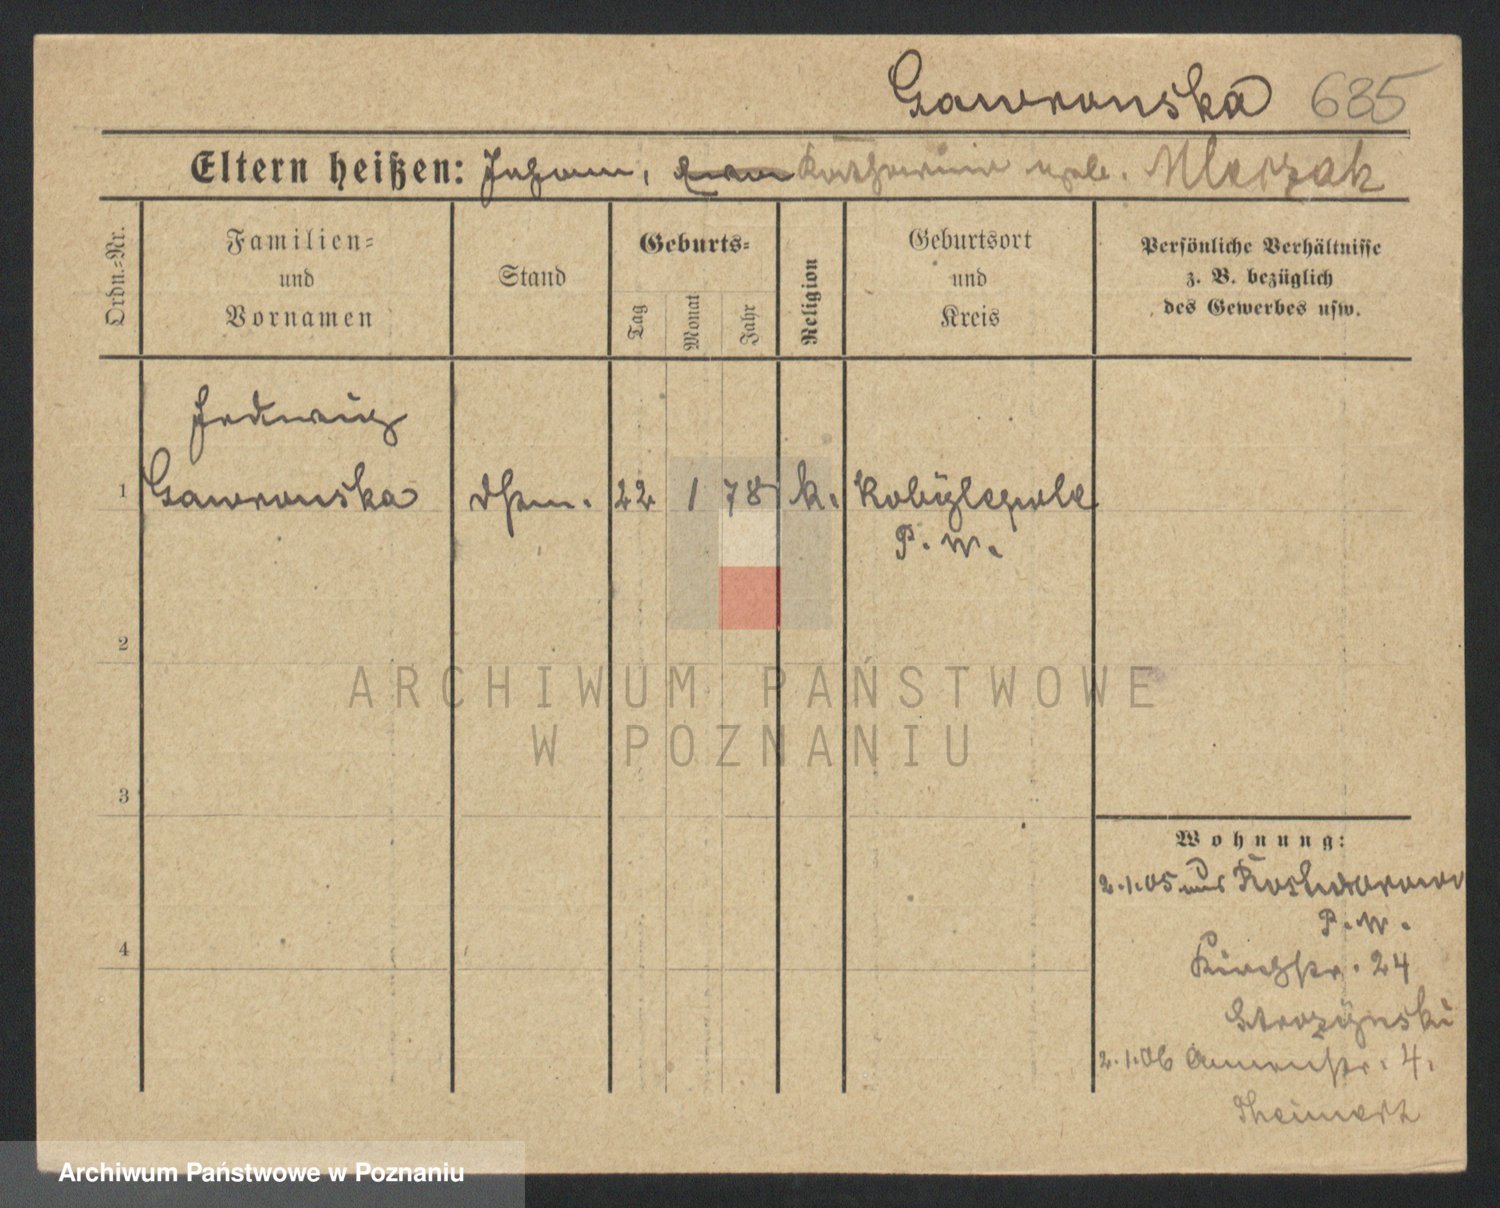 Gawronska 635
Eltern heißen: Johann, Katharina geb. Mleczak
Ordn.-Nr.
Familien-
und
Vornamen
Stand
Geburts-
Tag
Monat
Jahr
Religion
Geburtsort
und
Kreis
Persönliche Verhältnisse
z. B. bezüglich
des Gewerbes usw.
Hedwig
1 Gawronska 22 1 78 k. Kobylepole
P. W.
2
ARCHIWUM PAŃSTWOWE
W POZNANIU
3
Wohnung:
2.1.05 aus
P. W.
4
Kirchstr. 24
Strozynski
2.1.06 Annenstr. 4.
Archiwum Państwowe w Poznaniu